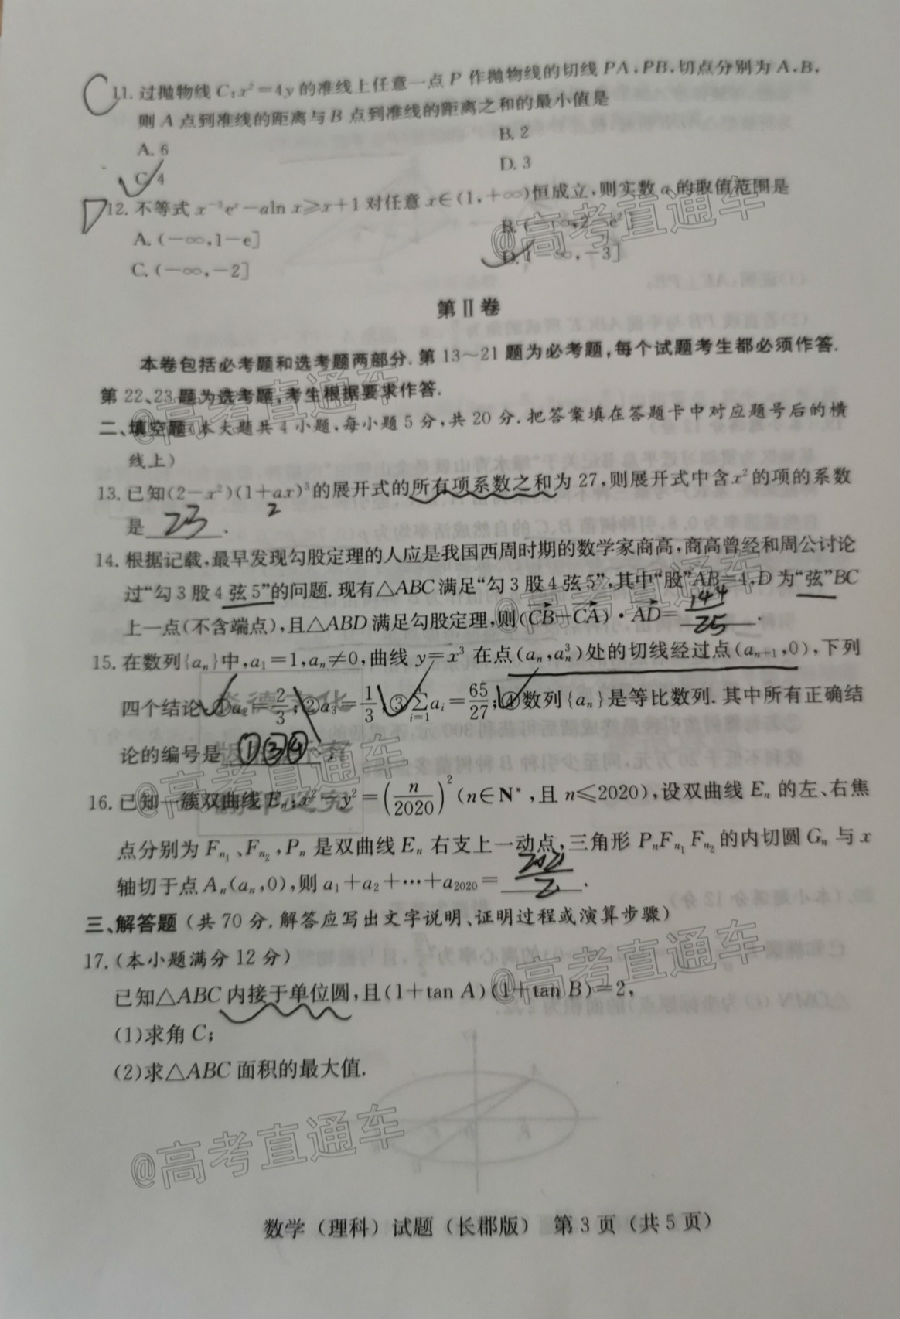 11.过抛物线C:x²=4y的准线上任意一点P作抛物线的切线PA,PB,切点分别为A,B,
则A点到准线的距离与B点到准线的距离之和的最小值是
A.6
B.2
C.4
D.3
C
12.不等式x⁻³eˣ-alnx≥x+1对任意x∈(1,+∞)恒成立,则实数a的取值范围是
D
A.(-∞,1-e]
B.(-∞,2-e²]
C.(-∞,-2]
D.(-∞,-3]
第Ⅱ卷
本卷包括必考题和选考题两部分.第13~21题为必考题,每个试题考生都必须作答.
第22、23题为选考题,考生根据要求作答.
二、填空题(本大题共4小题,每小题5分,共20分.把答案填在答题卡中对应题号后的横
线上)
13.已知(2-x²)(1+ax)³的展开式的所有项系数之和为27,则展开式中含x²的项的系数
2
是 23 .
14.根据记载,最早发现勾股定理的人应是我国西周时期的数学家商高,商高曾经和周公讨论
过“勾3股4弦5”的问题.现有△ABC满足“勾3股4弦5”,其中“股”AB=4,D为“弦”BC
上一点(不含端点),且△ABD满足勾股定理,则(CB-CA)·AD= 144/25 .
15.在数列{aₙ}中,a₁=1,aₙ≠0,曲线y=x³在点(aₙ,aₙ³)处的切线经过点(aₙ₊₁,0),下列
四个结论:①a₂=2/3;②a₃=1/3;③∑aᵢ=65/27;④数列{aₙ}是等比数列.其中所有正确结
论的编号是 ①③④ .
16.已知一簇双曲线Eₙ:x²-y²=(n/2020)²(n∈N*,且n≤2020),设双曲线Eₙ的左、右焦
点分别为Fₙ₁、Fₙ₂,Pₙ是双曲线Eₙ右支上一动点,三角形PₙFₙ₁Fₙ₂的内切圆Gₙ与x
轴切于点Aₙ(aₙ,0),则a₁+a₂+···+a₂₀₂₀= 2021/2 .
三、解答题(共70分.解答应写出文字说明、证明过程或演算步骤)
17.(本小题满分12分)
已知△ABC内接于单位圆,且(1+tan A)(1+tan B)=2,
(1)求角C;
(2)求△ABC面积的最大值.
数学(理科)试题(长郡版) 第3页(共5页)
@高考直通车
@高考直通车
@高考直通车
@高考直通车
@高考直通车
@高考直通车